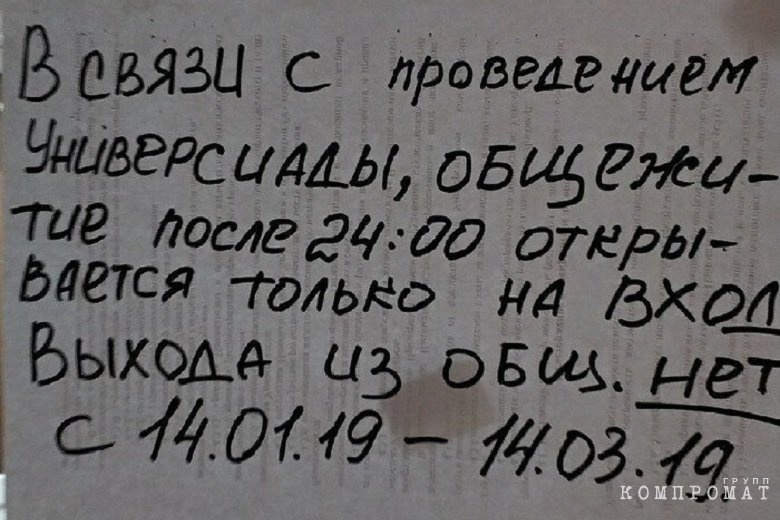 В СВЯЗИ С проведением
УНИВЕРСИАДЫ, ОБЩЕЖИ-
ТИЕ после 24:00 ОТКРЫ-
ВАЕТСЯ ТОЛЬКО НА ВХОД
ВЫХОДА ИЗ ОБЩ. НЕТ
С 14.01.19 – 14.03.19
ГРУПП
КОМПРОМАТ